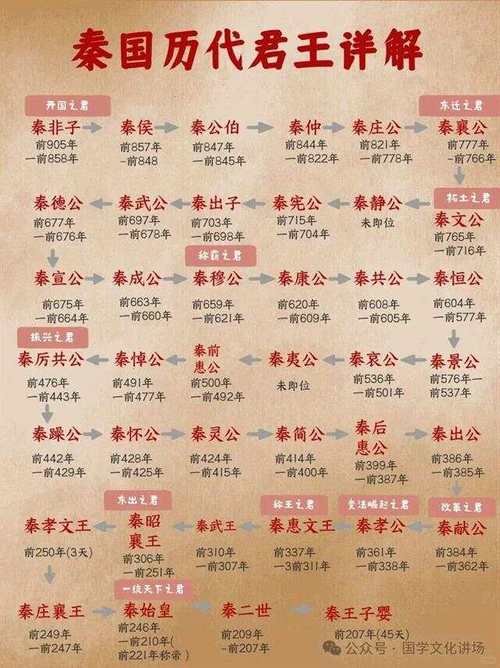 秦国历代君王详解
开国之君
秦非子
前905年
一前858年
秦侯
前857年
-前848
秦公伯
前847年
一前845年
秦仲
前844年
一前822年
秦庄公
前821年
一前778年
东迁之君
秦襄公
前777年
-前766年
拓土之君
秦文公
前765年
一前716年
秦静公
未即位
秦宪公
前715年
一前704年
秦出子
前703年
一前698年
秦武公
前697年
一前678年
秦德公
前677年
一前676年
秦宣公
前675年
一前664年
秦成公
前663年
一前660年
称霸之君
秦穆公
前659年
一前621年
秦康公
前620年
一前609年
秦共公
前608年
一前605年
秦恒公
前604年
一前577年
秦景公
前576年一
前537年
秦哀公
前536年
一前501年
秦夷公
未即位
秦前
惠公
前500年
一前492年
秦悼公
前491年
一前477年
振兴之君
秦厉共公
前476年
一前443年
秦躁公
前442年
一前429年
秦怀公
前428年
一前425年
秦灵公
前424年
一前415年
秦简公
前414年
一前400年
秦后
惠公
前399年
一前387年
秦出公
前386年
一前385年
改革之君
秦献公
前384年
一前362年
变法崛起之君
秦孝公
前361年
一前338年
称王之君
秦惠文王
前337年
一3前311年
秦武王
前310年
一前307年
东出之君
秦昭
襄王
前306年
一前251年
秦孝文王
前250年(3天)
秦庄襄王
前249年
一前247年
一统天下之君
秦始皇
前246年
一前210年(
前221年称帝)
秦二世
前209年
-前207年
秦王子婴
前207年(45天)
公众号·国学文化讲场